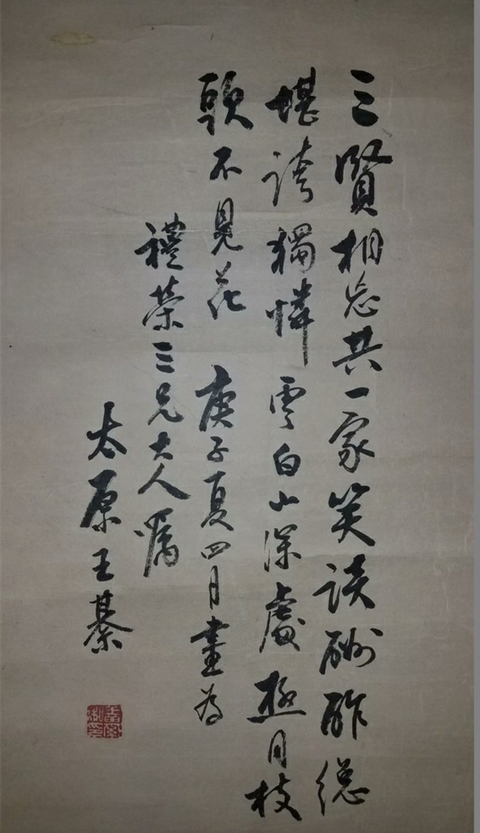 三賢相忘共一家笑談酬酢總
堪誇獨憐雲白山深處極目枝
頭不見花 庚子夏四月畫為
禮榮三兄大人嘱
太原王綦